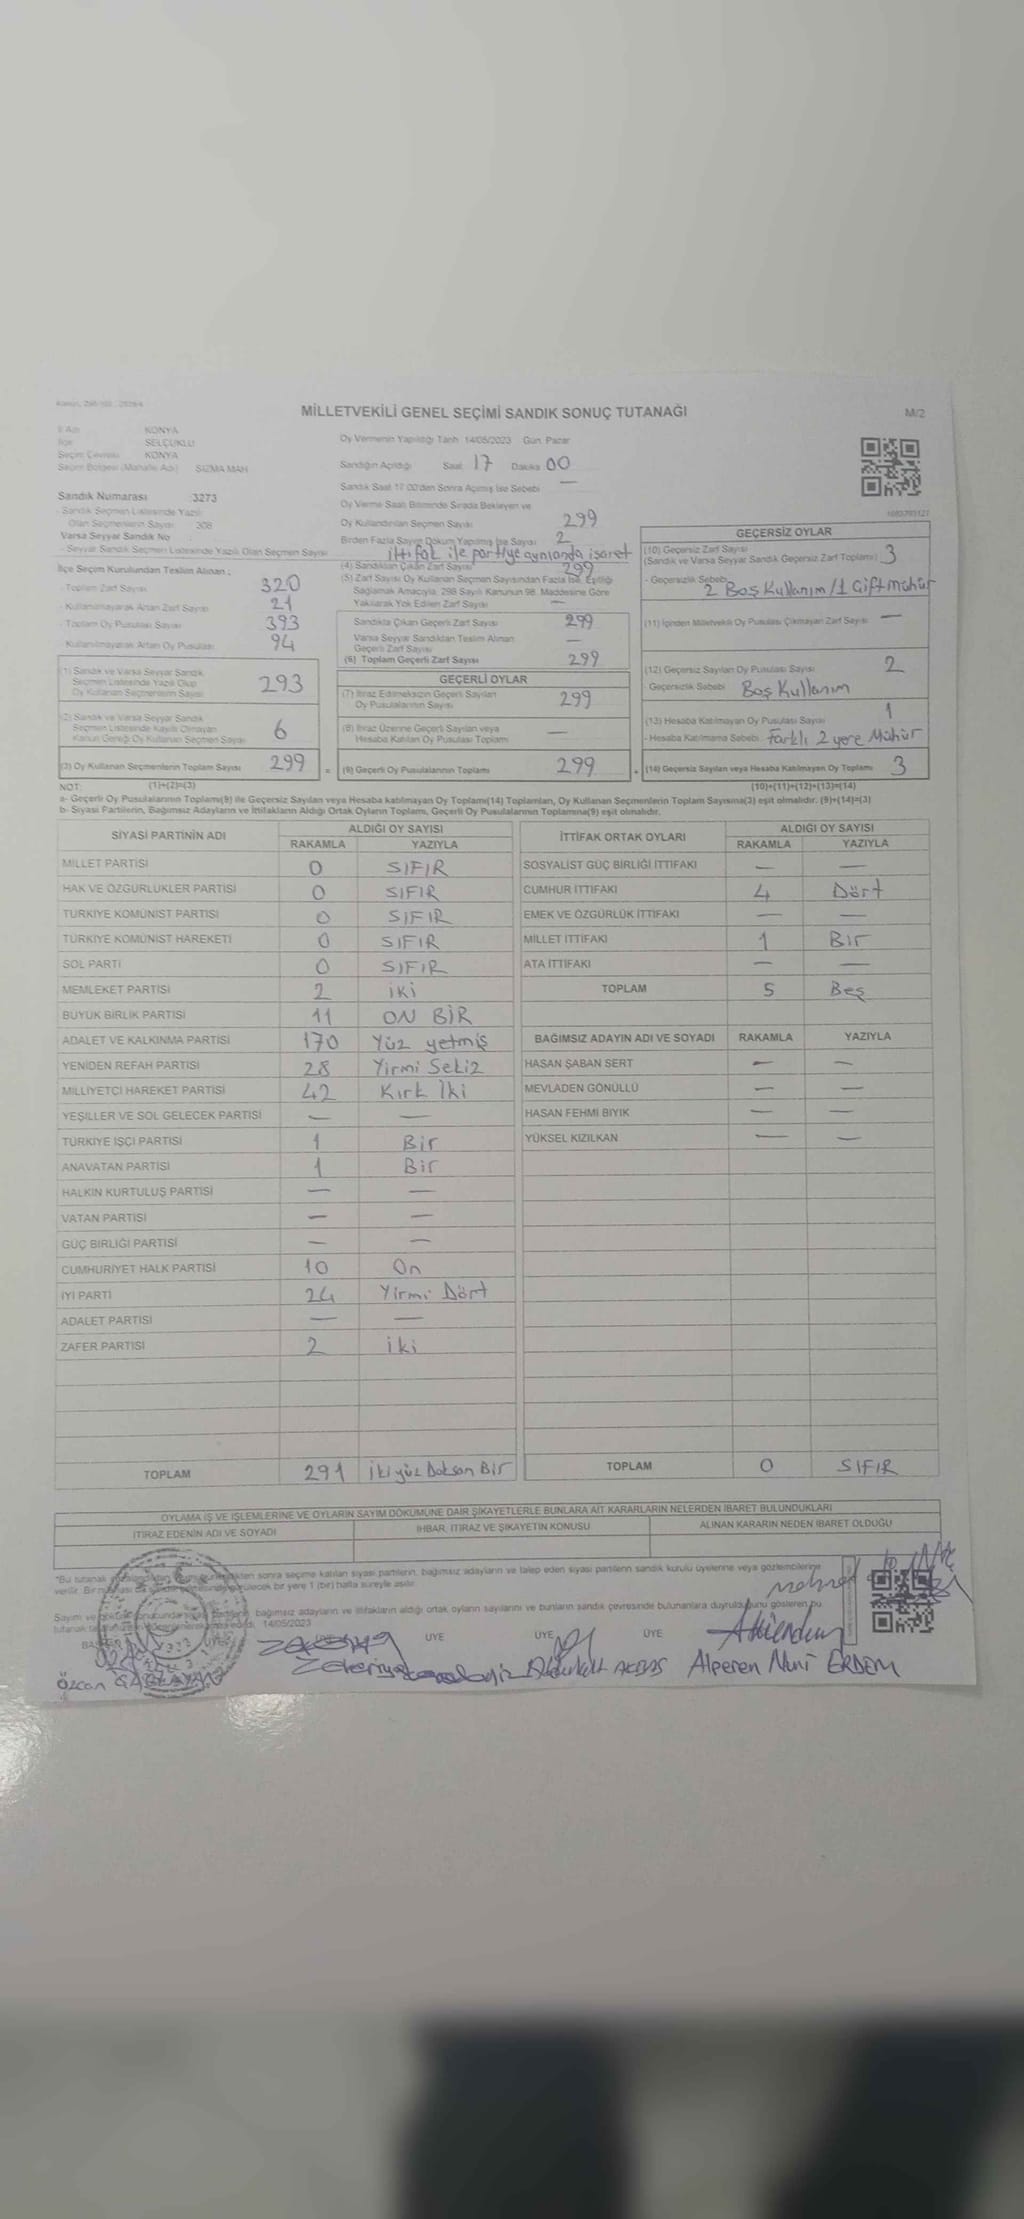 MİLLETVEKİLİ GENEL SEÇİMİ SANDIK SONUÇ TUTANAĞI
M/2
İl Adı KONYA
İlçe SELÇUKLU
Seçim Çevresi KONYA
Seçim Bölgesi (Mahalle Adı) SIZMA MAH
Sandık Numarası 3273
- Sandık Seçmen Listesinde Yazılı
Olan Seçmenlerin Sayısı 308
Varsa Seyyar Sandık No
- Seyyar Sandık Seçmen Listesinde Yazılı Olan Seçmen Sayısı
İlçe Seçim Kurulundan Teslim Alınan ;
- Toplam Zarf Sayısı 320
- Kullanılmayarak Artan Zarf Sayısı 21
- Toplam Oy Pusulası Sayısı 393
- Kullanılmayarak Artan Oy Pusulası 94
(1) Sandık ve Varsa Seyyar Sandık
Seçmen Listesinde Yazılı Olup
Oy Kullanan Seçmenlerin Sayısı 293
(2) Sandık ve Varsa Seyyar Sandık
Seçmen Listesinde Kayıtlı Olmayan
Kanun Gereği Oy Kullanan Seçmen Sayısı 6
(3) Oy Kullanan Seçmenlerin Toplam Sayısı 299
Oy Vermenin Yapıldığı Tarih 14/05/2023 Gün Pazar
Sandığın Açıldığı Saat 17 Dakika 00
Sandık Saat 17.00'den Sonra Açılmış İse Sebebi —
Oy Verme Saati Bitiminde Sırada Bekleyen ve
Oy Kullandırılan Seçmen Sayısı 299
Birden Fazla Sayım Döküm Yapılmış İse Sayısı 2
ittifak ile partiye aynı anda işaret
(4) Sandıktan Çıkan Zarf Sayısı 299
(5) Zarf Sayısı Oy Kullanan Seçmen Sayısından Fazla İse, Eşitliği
Sağlamak Amacıyla, 298 Sayılı Kanunun 98. Maddesine Göre
Yakılarak Yok Edilen Zarf Sayısı —
Sandıkta Çıkan Geçerli Zarf Sayısı 299
Varsa Seyyar Sandıktan Teslim Alınan
Geçerli Zarf Sayısı —
(6) Toplam Geçerli Zarf Sayısı 299
GEÇERLİ OYLAR
(7) İtiraz Edilmeksizin Geçerli Sayılan
Oy Pusulalarının Sayısı 299
(8) İtiraz Üzerine Geçerli Sayılan veya
Hesaba Katılan Oy Pusulası Toplamı —
= (9) Geçerli Oy Pusulalarının Toplamı 299
GEÇERSİZ OYLAR
(10) Geçersiz Zarf Sayısı
(Sandık ve Varsa Seyyar Sandık Geçersiz Zarf Toplamı) 3
- Geçersizlik Sebebi
2 Boş Kullanım/1 Çift mühür
(11) İçinden Milletvekili Oy Pusulası Çıkmayan Zarf Sayısı —
(12) Geçersiz Sayılan Oy Pusulası Sayısı 2
- Geçersizlik Sebebi Boş Kullanım
(13) Hesaba Katılmayan Oy Pusulası Sayısı 1
- Hesaba Katılmama Sebebi Farklı 2 yere Mühür
+ (14) Geçersiz Sayılan veya Hesaba Katılmayan Oy Toplamı 3
NOT: (1)+(2)=(3) (10)+(11)+(12)+(13)=(14)
a- Geçerli Oy Pusulalarının Toplamı(9) ile Geçersiz Sayılan veya Hesaba katılmayan Oy Toplamı(14) Toplamları, Oy Kullanan Seçmenlerin Toplam Sayısına(3) eşit olmalıdır. (9)+(14)=(3)
b- Siyasi Partilerin, Bağımsız Adayların ve İttifakların Aldığı Ortak Oyların Toplamı, Geçerli Oy Pusulalarının Toplamına(9) eşit olmalıdır.
SİYASİ PARTİNİN ADI ALDIĞI OY SAYISI
RAKAMLA YAZIYLA
MİLLET PARTİSİ 0 SIFIR
HAK VE ÖZGÜRLÜKLER PARTİSİ 0 SIFIR
TÜRKİYE KOMÜNİST PARTİSİ 0 SIFIR
TÜRKİYE KOMÜNİST HAREKETİ 0 SIFIR
SOL PARTİ 0 SIFIR
MEMLEKET PARTİSİ 2 iki
BÜYÜK BİRLİK PARTİSİ 11 ON BİR
ADALET VE KALKINMA PARTİSİ 170 Yüz yetmiş
YENİDEN REFAH PARTİSİ 28 Yirmi Sekiz
MİLLİYETÇİ HAREKET PARTİSİ 42 Kırk İki
YEŞİLLER VE SOL GELECEK PARTİSİ — —
TÜRKİYE İŞÇİ PARTİSİ 1 Bir
ANAVATAN PARTİSİ 1 Bir
HALKIN KURTULUŞ PARTİSİ — —
VATAN PARTİSİ — —
GÜÇ BİRLİĞİ PARTİSİ — —
CUMHURİYET HALK PARTİSİ 10 On
İYİ PARTİ 24 Yirmi Dört
ADALET PARTİSİ — —
ZAFER PARTİSİ 2 iki
TOPLAM 291 ikiyüz Doksan Bir
İTTİFAK ORTAK OYLARI ALDIĞI OY SAYISI
RAKAMLA YAZIYLA
SOSYALİST GÜÇ BİRLİĞİ İTTİFAKI — —
CUMHUR İTTİFAKI 4 Dört
EMEK VE ÖZGÜRLÜK İTTİFAKI — —
MİLLET İTTİFAKI 1 Bir
ATA İTTİFAKI — —
TOPLAM 5 Beş
BAĞIMSIZ ADAYIN ADI VE SOYADI RAKAMLA YAZIYLA
HASAN ŞABAN SERT — —
MEVLADEN GÖNÜLLÜ — —
HASAN FEHMİ BIYIK — —
YÜKSEL KIZILKAN — —
TOPLAM 0 SIFIR
OYLAMA İŞ VE İŞLEMLERİNE VE OYLARIN SAYIM DÖKÜMÜNE DAİR ŞİKAYETLERLE BUNLARA AİT KARARLARIN NELERDEN İBARET BULUNDUKLARI
İTİRAZ EDENİN ADI VE SOYADI İHBAR, İTİRAZ VE ŞİKAYETİN KONUSU ALINAN KARARIN NEDEN İBARET OLDUĞU
sonra seçime katılan siyasi partilerin, bağımsız adayların ve talep eden siyasi partilerin sandık kurulu üyelerine veya gözlemcilerine
verilir. Bir bir yere 1 (bir) hafta süreyle asılır.
bağımsız adayların ve ittifakların aldığı ortak oyların sayılarını ve bunların sandık çevresinde bulunanlara duyrulduğunu gösteren bu
14/05/2023
ÜYE ÜYE ÜYE
Özcan
Zekeriya AKBAŞ Alperen Nuri ERDEM